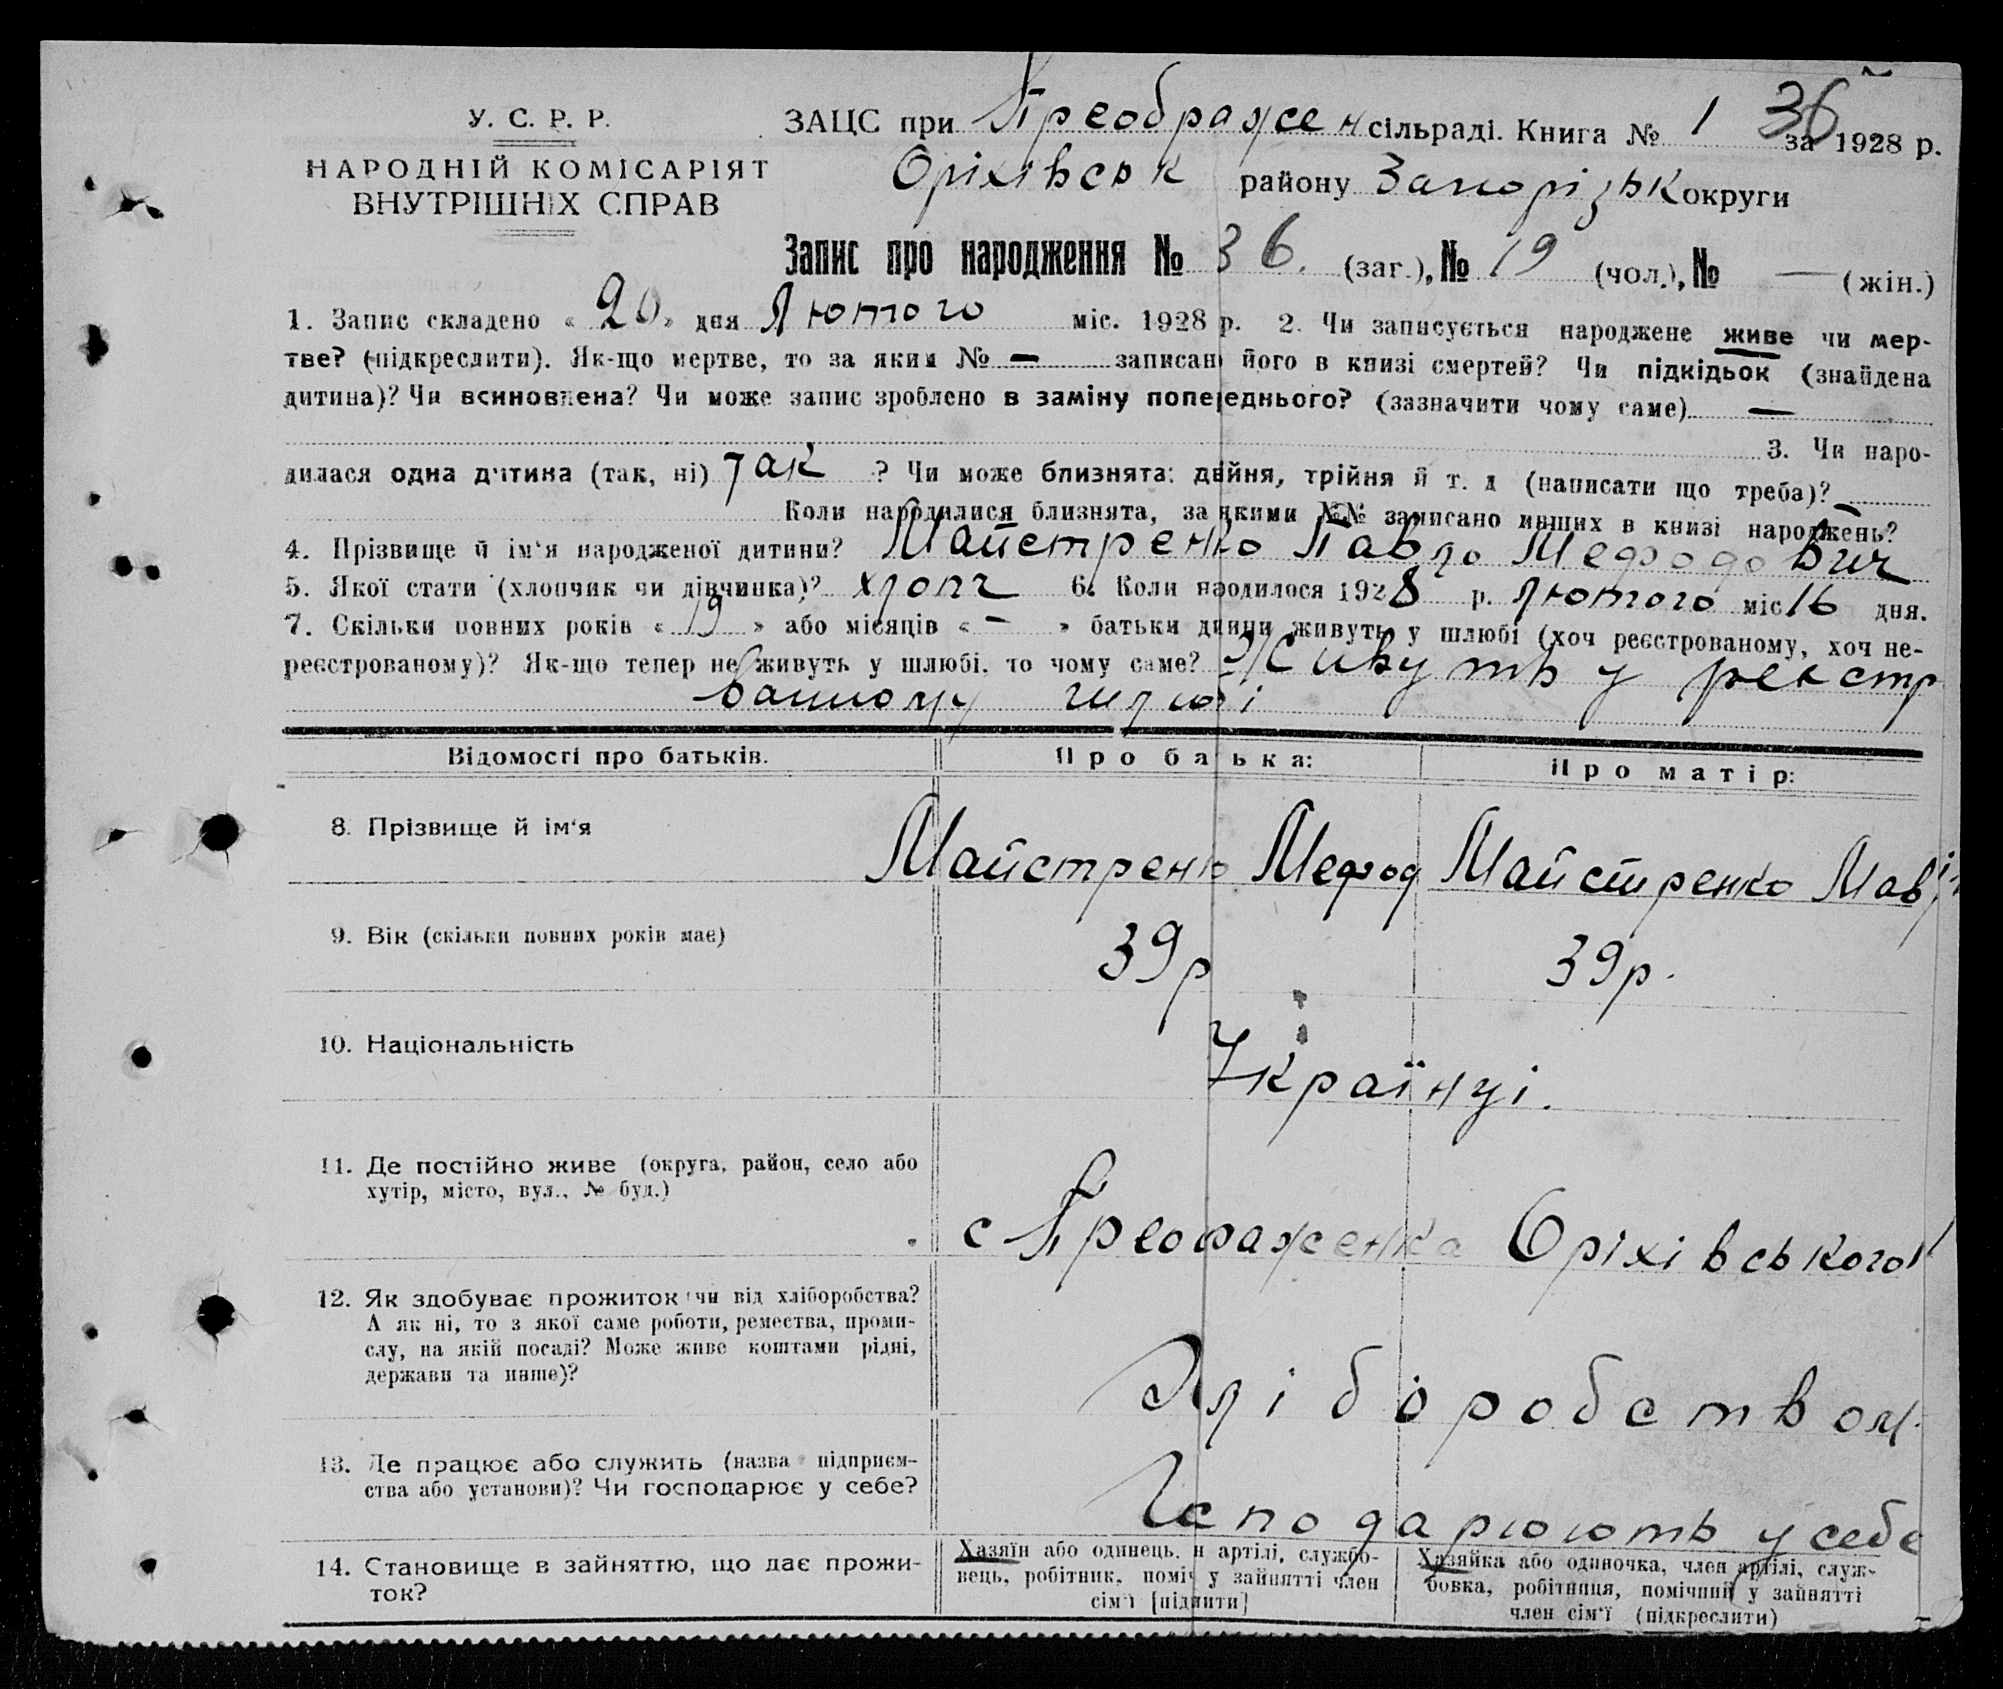 У. С. Р. Р.
НАРОДНІЙ КОМІСАРІЯТ
ВНУТРІШНІХ СПРАВ
36
ЗАЦС при Преображен сільраді. Книга № 1 за 1928 р.
Оріхівськ району Запорізьк округи
Запис про народження № 36. (заг.), № 19 (чол.), № — (жін.)
1. Запис складено « 20 » дня Лютого міс. 1928 р. 2. Чи записується народжене живе чи мер-
тве? (підкреслити). Як-що мертве, то за яким № — записано його в книзі смертей? Чи підкідьок (знайдена
дитина)? Чи всиновлена? Чи може запис зроблено в заміну попереднього? (зазначити чому саме) —
3. Чи наро-
дилася одна дитина (так, ні) так ? Чи може близнята: двійня, трійня й т. д (написати що треба)?
Коли народилися близнята, за якими №№ записано инших в книзі народжень? —
4. Прізвище й ім'я народженої дитини? Майстренко Павло Мефодович
5. Якої стати (хлопчик чи дівчинка)? хлопч 6. Коли народилося 1928 р. лютого міс 16 дня.
7. Скільки повних років « 19 » або місяців « — » батьки дитини живуть у шлюбі (хоч реєстрованому, хоч не-
реєстрованому)? Як-що тепер не живуть у шлюбі, то чому саме? Живуть у реєстр
ванному шлюбі
Відомості про батьків. Про батька: Про матір:
8. Прізвище й ім'я Майстренко Мефод Майстренко
9. Вік (скільки повних років має) 39р 39р.
10. Національність Українці.
11. Де постійно живе (округа, район, село або
хутір, місто, вул., № буд.)
с Преображенка Оріхівського
12. Як здобуває прожиток: чи від хліборобства?
А як ні, то з якої саме роботи, ремества, проми-
слу, на якій посаді? Може живе коштами рідні,
держави та инше)?
Хліборобством.
13. Де працює або служить (назва підприєм-
ства або установи)? Чи господарює у себе?
Господарюють у себе
14. Становище в зайняттю, що дає прожи-
ток?
Хазяїн або одинець. н артілі, службо-
вець, робітник, поміч у зайнятті член
сім'ї [підкнити]
Хазяйка або одиночка, член артілі, служ-
бовка, робітниця, помічний у зайнятті
член сім'ї (підкреслити)